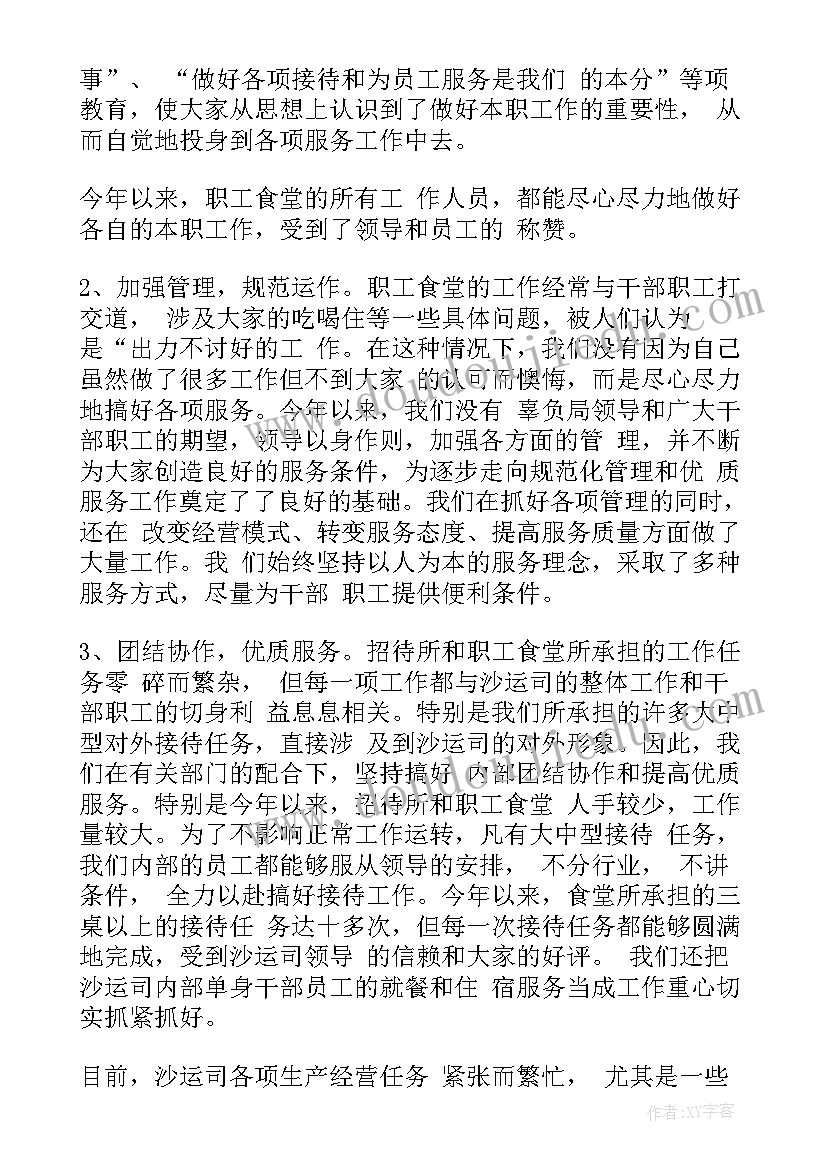 事”、 “做好各项接待和为员工服务是我们 的本分”等项
教育，使大家从思想上认识到了做好本职工作的重要性， 从
而自觉地投身到各项服务工作中去。
今年以来，职工食堂的所有工 作人员，都能尽心尽力地做好
各自的本职工作，受到了领导和员工的 称赞。
2、加强管理，规范运作。职工食堂的工作经常与干部职工打
交道， 涉及大家的吃喝住等一些具体问题，被人们认为
是“出力不讨好的工 作。在这种情况下，我们没有因为自己
虽然做了很多工作但不到大家 的认可而懊悔，而是尽心尽力
地搞好各项服务。今年以来，我们没有 辜负局领导和广大干
部职工的期望，领导以身作则，加强各方面的管 理，并不断
为大家创造良好的服务条件，为逐步走向规范化管理和优 质
服务工作奠定了了良好的基础。我们在抓好各项管理的同时，
还在 改变经营模式、转变服务态度、提高服务质量方面做了
大量工作。我 们始终坚持以人为本的服务理念，采取了多种
服务方式，尽量为干部 职工提供便利条件。
3、团结协作，优质服务。招待所和职工食堂所承担的工作任
务零 碎而繁杂， 但每一项工作都与沙运司的整体工作和干
部职工的切身利 益息息相关。特别是我们所承担的许多大中
型对外接待任务，直接涉 及到沙运司的对外形象。因此，我
们在有关部门的配合下，坚持搞好 内部团结协作和提高优质
服务。特别是今年以来，招待所和职工食堂 人手较少，工作
量较大。为了不影响正常工作运转，凡有大中型接待 任务，
我们内部的员工都能够服从领导的安排， 不分行业， 不讲
条件， 全力以赴搞好接待工作。今年以来，食堂所承担的三
桌以上的接待任 务达十多次，但每一次接待任务都能够圆满
地完成，受到沙运司领导 的信赖和大家的好评。 我们还把
沙运司内部单身干部员工的就餐和住 宿服务当成工作重心切
实抓紧抓好。
目前，沙运司各项生产经营任务 紧张而繁忙， 尤其是一些
www.doudoujiedu.com
www.doudoujiedu.com
作者:XY字客